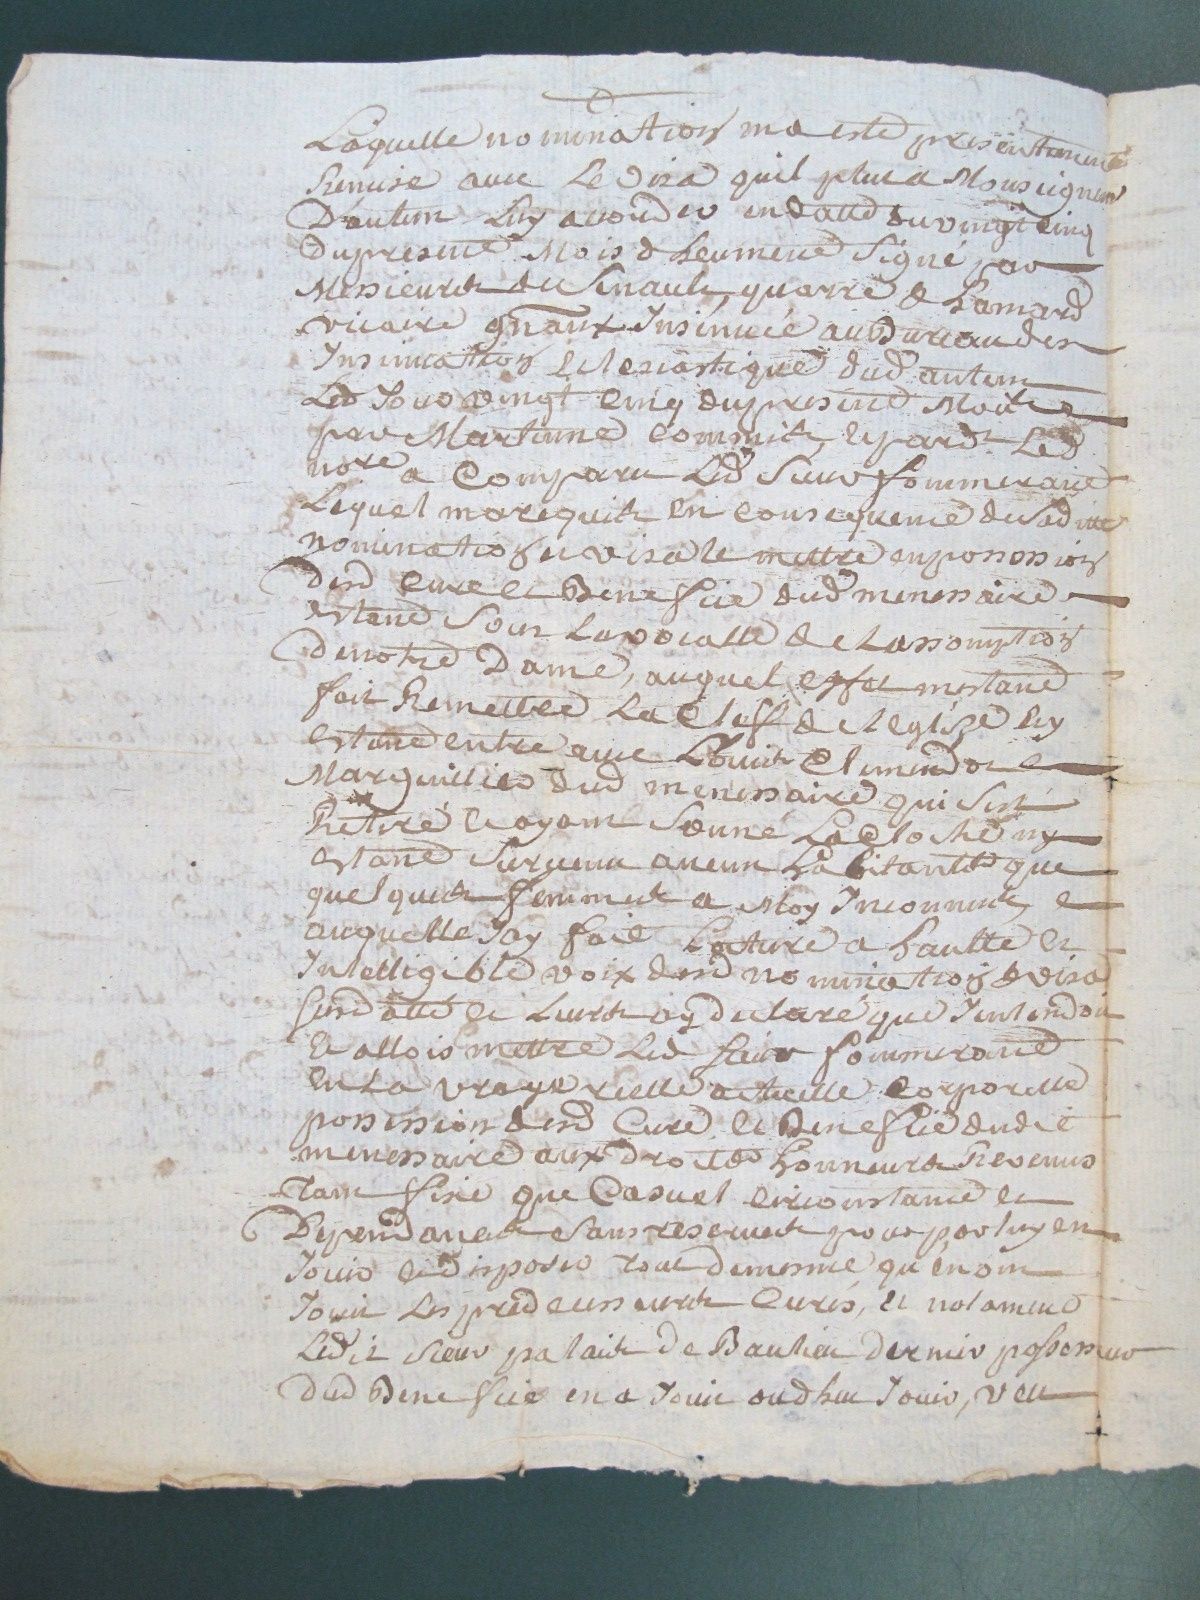 Laquelle nomination ma esté presentement
Remise avec Le visa quil plut a Monseigneur
D'autun Luy accorder en datte du vingt cinq
du present Mois & Leumene signé par
Messieurs de Senault, quarré & hamard
vicaire gnaux Insinuée au Bureau des
Insinuation Eclesiastique dud autun
Led Jour vingt cinq du present Mois
par Martenne commis, et par dt Led
nore a Comparu Led Sieur fommerand
Lequel ma requis En consequence de saditte
nomination et visa le mettre en possession
desd cure et Benefice dud menessaire
estand Sour La vocatte de Lassomption
de notre Dame, auquel effet mestand
fait Remettre La Cleff de leglize Et y
estand entré avec Louis Clemendot
Marguillier dud menessaire qui sest
Retiré Et ayant Sonné La Cloche ny
estand survenu aucun habitants que
quelques femmes a Moy Inconnues, e
auquelle Jay fait Lecture a haulte et
Intelligible voix desd nomination & visa
susdatté et Leurs ay declaré que Jentendois
Et allois mettre Led sieur fommerand
En La vraye rielle actuelle corporelle
possession desd Cure et Benefice dudit
menessaire aux droits honneurs Revenus
Tant fixe que Casuel circonstance et
Dependances sans reserves pour par luy en
Jouir et disposer tout de mesme quen ont
Jouit Les predecesseurs Curés, et notament
Ledit sieur palait De Baulieu dernier possesseur
dud Benefice en a Jouit ou dhu Jouir, veu